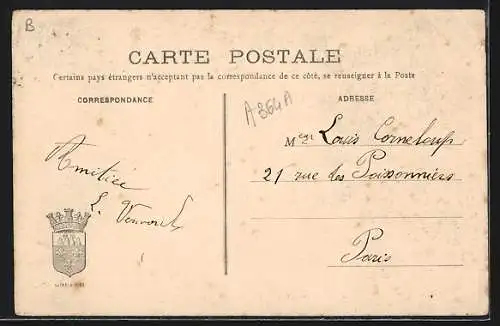 B
CARTE POSTALE
Certains pays étrangers n'acceptant pas la correspondance de ce côté, se renseigner à la Poste
CORRESPONDANCE
ADRESSE
A 364 A
Mr Louis Corneloup
21 rue des Poissonniers
Paris
Amitiés
L.